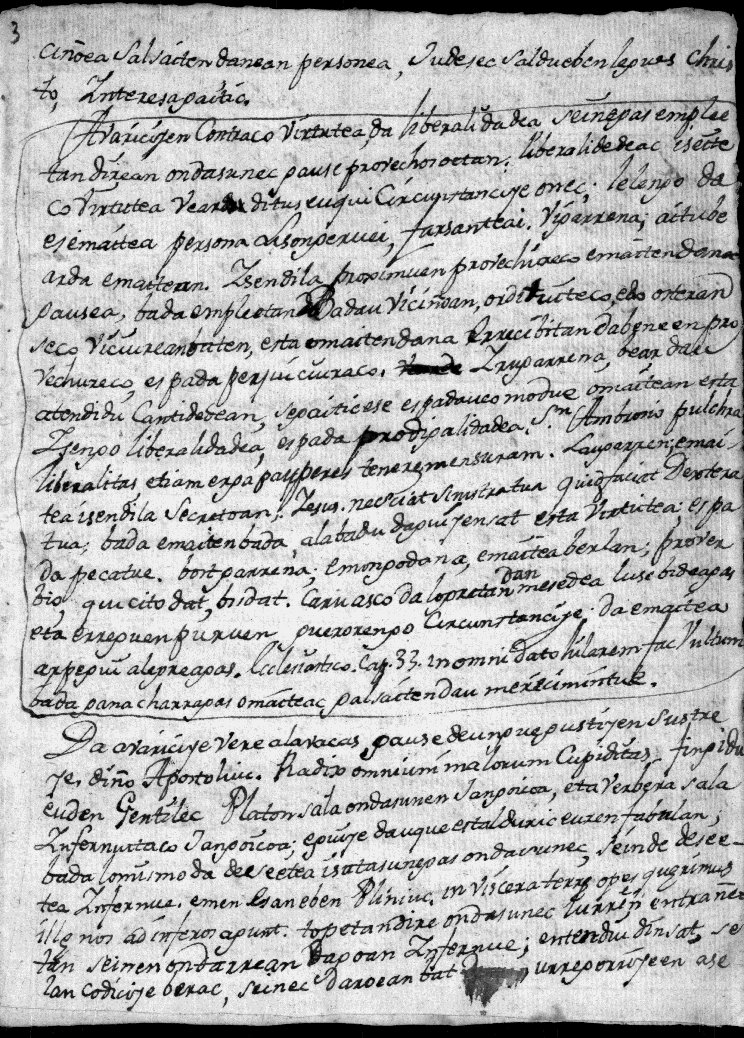 3
cinoea salsaiten danean personea, Judesec saldu eben legues Chris
to, Interesagaitic.
Avaricijen Contraco Virtutea, da liberalidadea seinegas emplee
tan direan ondasunec gause provechosoetan. liberalidedeac
co Virtutea dituseuqui Circunstancije onec; lelengo da
esemaitea persona Lisongeruei, farsanteai. Vigarrena; aitube
arda emaitean. Isendila proximuen provechureco emaiten dana
gausea, bada empleetan Badau Viciñoan, edo
seco Vicijurean baten, esta emaiten dana Errecibitan dabenen pro
vechureco, espada perjuicijuraco. Irugarrena, bear dau
atendidu Cantidadean, segaitic ese espadauco modue emaitean esta
Isengo liberalidadea, espada prodigalidadea. Sn. Ambrosio pulchra
liberalitas etiam erga pauperes tenere mensuram. Laugarren; emai
tea isendila Secretoan. Jesus. nesciat sinistra tua quid faciat Dextera
tua; bada emaiten bada, alabadu daguijensat esta Virtutea; espa
da pecatue. bostgarrena; Emongo dana, emaitea berlan; prover
bio, qui cito dat, bis dat. Caru asco da logretan dan mesedea luse bideagas
eta erreguen furuen. Circunstancije da emaitea
arpegui alegreagas. Ecclesiastico. Cap. 33. in omni dato hilarem fac Vultum
bada gana charragas emaiteac galsaiten dau merecimentue.
Da avaricije vere alaracas gause deunguegustijen sustre
je, diño Apostoluc. Radix omnium malorum Cupiditas. finjidu
euden Gentilec Platon sala ondasunen Jangoicoa, eta verbera sala
Infernuetaco Jangoicoa; eguije dauque estalduric euren fabulan;
bada lo mismo da deseetea isatasunegas ondasunec, seinde desee-
tea Infernue. emen Esan eben Pliniuc. in viscera terre opes querimus
ille nos ad inferos agunt. topetan dire ondasunec lurren entrañee
tan seinen ondarrean dagoan Infernue; entendiu dinsat, se
lan codicije berac, seinec daroean bat urre gorrijeen ase